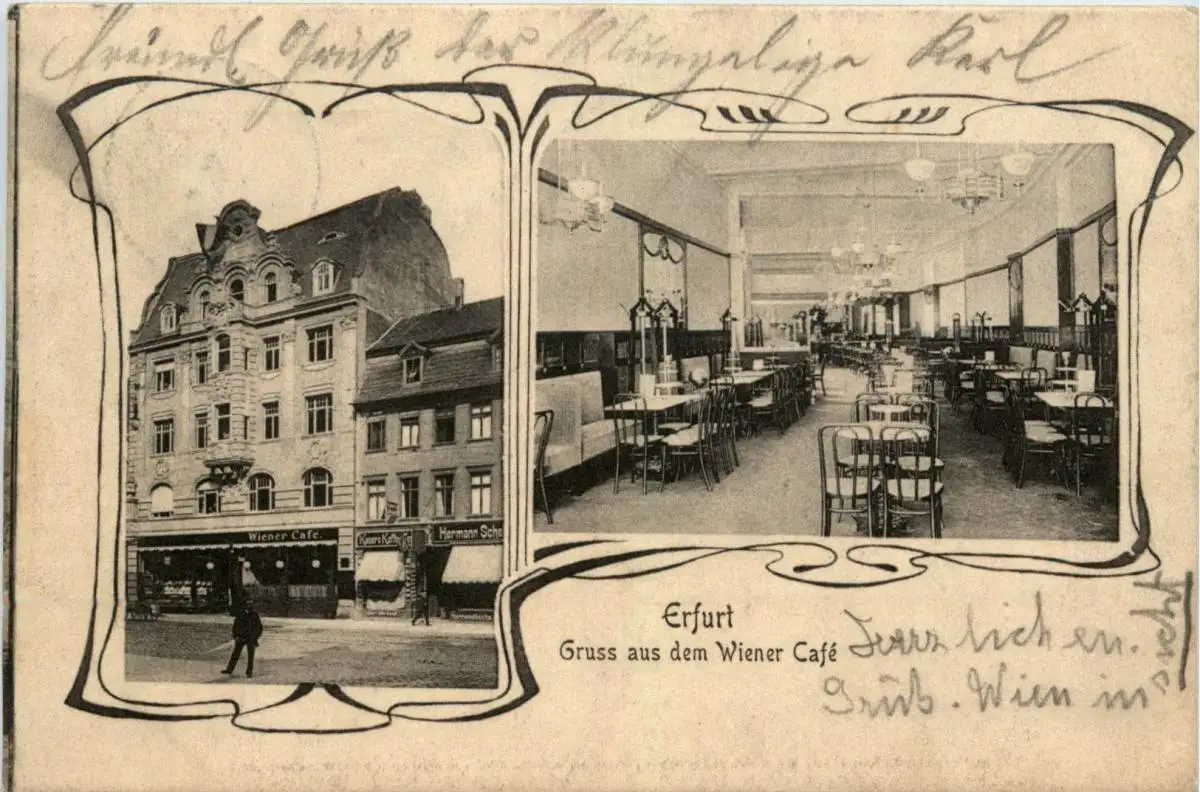 Freundl Gruß der Klungelige Karl
Wiener Café.
Kaisers Kaffee
Hermann Sche
Erfurt
Gruss aus dem Wiener Café
Herzlichen.
Grüß. Wien in